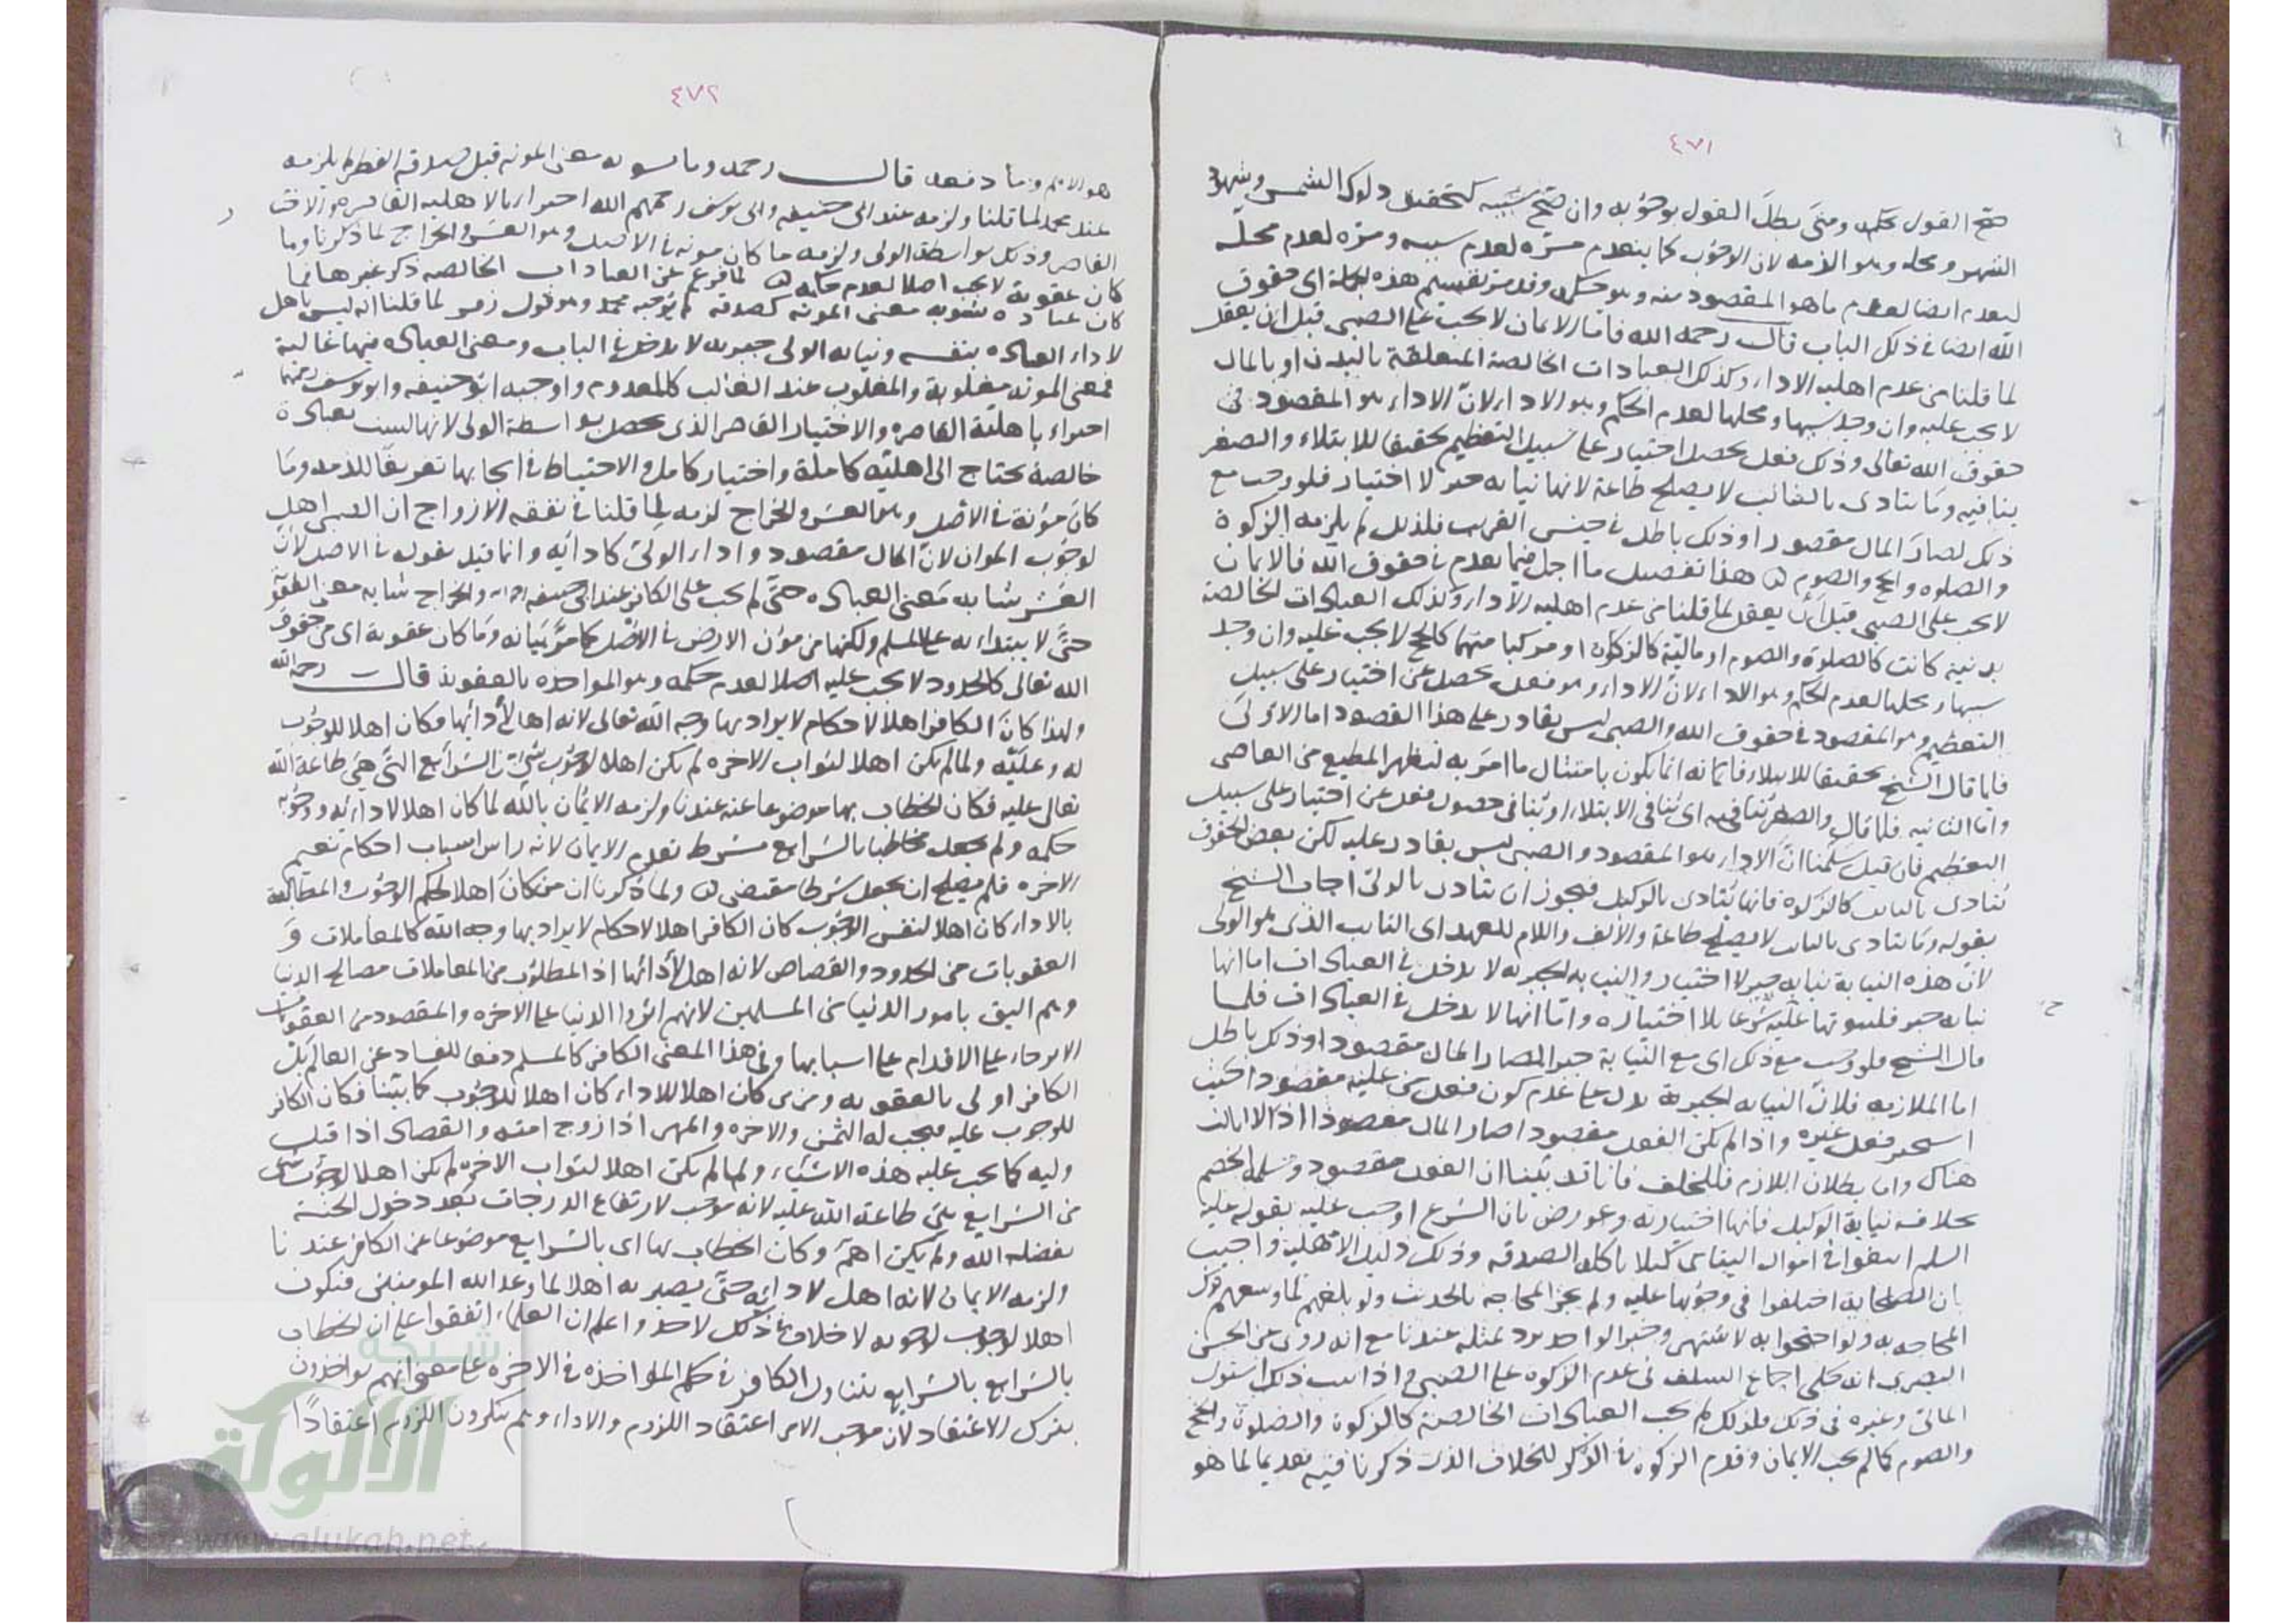 ٤٧١
صح القول بحكمه ومتى بطل القول بوجوبه وان صح سببه كتحقيق دلوك الشمس وشهود
الشهر ومحله وهو الذمه لان الوجوب كما ينعدم مره لعدم سببه ومره لعدم محله
ينعدم ايضا لعدم ما هو المقصود منه وهو حكمه وقد مر تقسيم هذه الجملة اى حقوق
الله ايضا فى ذلك الباب قال رحمه الله فاما الايمان لا يجب على الصبى قبل ان يعقل
لما قلنا من عدم اهلية الاداء وكذلك العبادات الخالصة المتعلقة بالبدن او بالمال
لا يجب عليه وان وجد سببها ومحلها لعدم الحكم وهو الاداء لان الاداء هو المقصود فى
حقوق الله تعالى وذلك فعل يحصل عن اختيار على سبيل التعظيم تحقيقا للابتلاء والصغر
ينافيه وما يتادى بالنائب لا يصلح طاعة لانها نيابه جبر لا اختيار فلو وجب مع
ذلك لصار المال مقصودا وذلك باطل فى جنس القرب فلذلك لم يلزمه الزكوة
والصلوه والحج والصوم هذا تفصيل ما اجمل فيما تقدم فى حقوق الله فالايمان
لا يجب على الصبى قبل ان يعقل لما قلنا من عدم اهلية الاداء وكذلك العبادات الخالصة
بدنيه كانت كالصلوة والصوم او مالية كالزكوة او مركبا منهما كالحج لا يجب عليه وان وجد
سببها ومحلها لعدم الحكم وهو الاداء لان الاداء وهو فعل يحصل عن اختيار على سبيل
التعظيم وهو المقصود فى حقوق الله والصبى ليس بقادر على هذا المقصود اما الاولى
فلما قال الشيخ تحقيقا للابتلاء فانه انما يكون بامتثال ما امر به ليظهر المطيع من العاصى
واما الثانيه فلما قال والصغر ينافيه اى ينافى الابتلاء او ينافى حصول فعل عن اختيار على سبيل
التعظيم فان قيل سلمنا ان الاداء هو المقصود والصبى ليس بقادر عليه لكن بعض الحقوق
تتادى بالنائب كالزكوة فانها تتادى بالوكيل فيجوز ان يتادى بالولى اجاب الشيخ
بقوله وما يتادى بالنائب لا يصلح طاعة والالف واللام للعهد اى النايب الذى هو الولى
لان هذه النيابة نيابه جبر لا اختيار والنيابه الجبريه لا يدخل فى العبادات اما انها
نيابه جبر فلثبوتها عليه شرعا بلا اختياره واما انها لا يدخل فى العبادات فلما
قال الشيخ فلو وجب مع ذلك اى مع النيابة جبرا لصار المال مقصودا وذلك باطل
اما الملازمه فلان النيابه الجبرية تدل على عدم كون فعل من عليه مقصودا حيث
فعل غيره واذا لم يكن الفعل مقصودا صار المال مقصودا اذ لا ثالث
هناك واما بطلان اللازم فللخلف فانا قد بينا ان الفعل مقصود ويسلمه الخصم
بخلاف نيابة الوكيل فانها اختياريه وعورض بان الشرع اوجب عليه بقوله عليه
السلم ابتغوا فى اموال اليتامى كيلا ياكلها الصدقه وذلك دليل الاهلية واجيب
بان الصحابة اختلفوا فى وجوبها عليه ولم يجز المحاجه بالحديث ولو بلغهم لما وسعهم ترك
المحاجه به ولو احتجوا به لاشتهر وخبر الواحد يرد بمثله عندنا مع انه روى عن الحسن
البصرى انه حكى اجماع السلف فى عدم الزكوة على الصبى واذا ثبت ذلك استوى
المالى وغيره فى ذلك فلذلك لم يجب العبادات الخالصة كالزكوة والصلوة والحج
والصوم كما لم يجب الايمان وقدم الزكوة فى الذكر للخلاف الذى ذكرنا فيه تقديما لما هو
٤٧٢
هو الاهم وما دفعه قال رحمه وما يشوبه معنى المونه قبل صدقة الفطر لم يلزمه
عند محمد لما قلنا ولزمه عند ابى حنيفه وابى يوسف رحمهم الله اجتزاء بالاهليه القاصره والاختيار
القاصر وذلك بواسطة الولى ولزمه ما كان مونه فى الاصل وهو العشر والخراج لما ذكرنا وما
كان عقوبة لا يجب اصلا لعدم حكمه لما فرغ عن العبادات الخالصه ذكر غيرها فما
كان عباده يشوبه معنى المونه كصدقة لم يوجبه محمد وهو قول زفر لما قلنا انه ليس باهل
لاداء العباده بنفسه ونيابه الولى جبريه لا يدخل فى الباب ومعنى العباده فيها غالبة
فمعنى المونه مغلوبة والمغلوب عند الغالب كالمعدوم واوجبه ابو حنيفه وابو يوسف رحمهما
اجتزاء باهلية القاصره والاختيار القاصر الذى يحصل بواسطة الولى لانها ليست بعبادة
خالصة يحتاج الى اهلية كاملة واختيار كامل والاحتياط فى ايجابها تعريقا للذمه وما
كان مؤنة فى الاصل وهو العشر والخراج لزمه لما قلنا فى نفقه الازواج ان الصبى اهل
لوجوب المؤن لان المال مقصود واداء الولى كادائه وانما قيد بقوله فى الاصل لان
العشر شابه معنى العباده حتى لم يجب على الكافر عند ابى حنيفه والخراج شابه معنى العقوبة
حتى لا يبتداء به على المسلم ولكنها من مون الارض فى الاصل كما مر بيانه وما كان عقوبة اى من حقوق
الله تعالى كالحدود لا يجب عليه اصلا لعدم حكمه وهو المواخذه بالعقوبة قال رحمه الله
ولهذا كان الكافر اهلا لاحكام لا يراد بها وجه الله تعالى لانه اهل لادائها فكان اهلا للوجوب
له وعليه ولما لم يكن اهلا لثواب الاخره لم يكن اهلا لوجوب شئ من الشرايع التى هى طاعة الله
تعالى عليه فكان الخطاب بها موضوعا عنه عندنا ولزمه الايمان بالله لما كان اهلا لادائه ووجوب
حكمه ولم يجعل مخاطبا بالشرايع بشرط تقدم الايمان لانه راس اسباب احكام نعيم
الاخره فلم يصلح ان يجعل شرطا مقتضى ولما ذكرنا ان من كان اهلا لحكم الوجوب والمطالبة
بالاداء كان اهلا لنفس الوجوب كان الكافر اهلا لاحكام لا يراد بها وجه الله كالمعاملات و
العقوبات من الحدود والقصاص لانه اهل لادائها اذ المطلوب من المعاملات مصالح الدنيا
وهم اليق بامور الدنيا من المسلمين لانهم اثروا الدنيا على الاخره والمقصود من العقوبات
الانزجار عن الاقدام على اسبابها وفى هذا المعنى الكافر كالمسلم دفعا للفساد عن العالم بل
الكافر اولى بالعقوبه ومن كان اهلا للاداء كان اهلا للوجوب كما بينا فكان الكافر
للوجوب عليه فيجب له الثمن والاجره والمهر اذا زوج امته والقصاص اذا قتل
وليه كما يجب عليه هذه الاشياء ولما لم يكن اهلا لثواب الاخره لم يكن اهلا لوجوب شئ
من الشرايع هى طاعة الله عليه لانه موجب لارتفاع الدرجات بعد دخول الجنة
بفضل الله ولم يكن اهله وكان الخطاب بها اى بالشرايع موضوعا عن الكافر عندنا
ولزمه الايمان لانه اهل لادائه حتى يصير به اهلا لما وعد الله المومنين فيكون
اهلا لوجوبه لا خلاف فى ذلك لاحد واعلم ان العلماء اتفقوا على ان الخطاب
بالشرايع بالشرايع يتناول الكافر فى حكم المواخذه فى الاخره على معنى انهم يواخذون
بترك الاعتقاد لان موجب الامر اعتقاد اللزوم والاداء وهم ينكرون اللزوم اعتقادا
شبكة
الألوكة
www.alukah.net